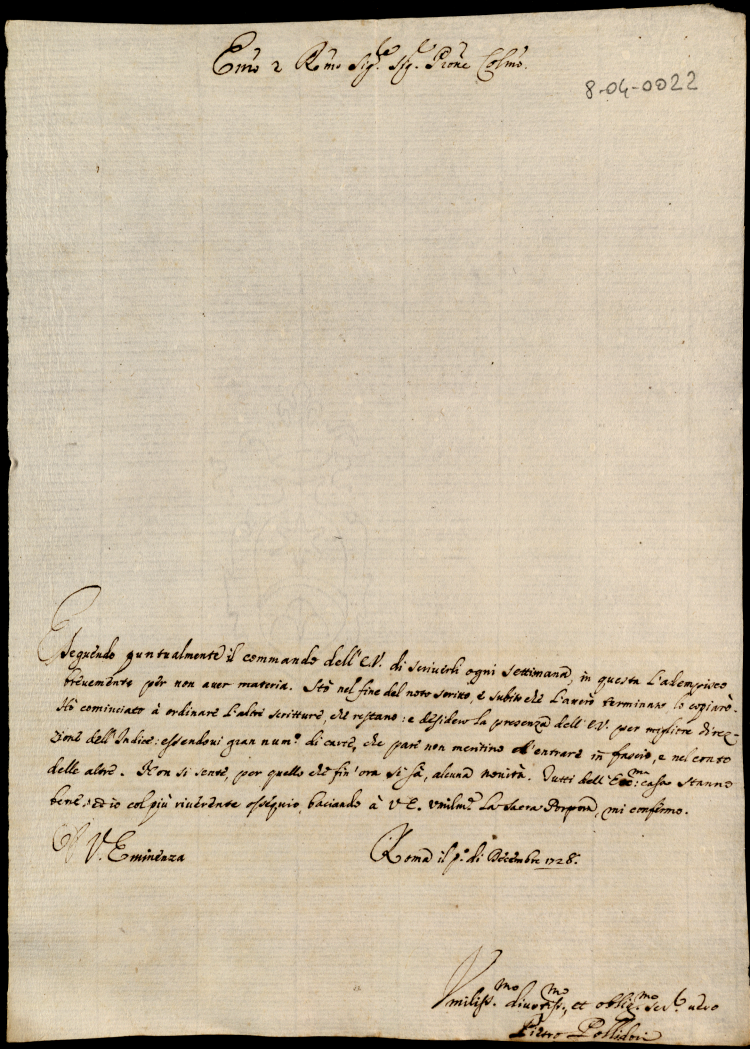 Em̃o e Rm̃o Sig.re Sig.re Pron̄e Colm̃o.
8-04-0022
Eseguendo puntualmente il commando dell'E.V. di scriverli ogni settimana, in questa l'adempisco
brevemente per non aver materia. Stò nel fine del noto scritto, e subito che l'averò terminato lo copiarò.
Hò cominciato à ordinare l'altre scritture, che restano: e desidero la presenza dell'E.V. per migliore direz-
zione dell'Indice: essendovi gran num.o di carte, che pare non meritino d'entrare in fascio, e nel conto
delle altre. Non si sente, per quello che fin'ora si sà, alcuna novità. Tutti dell'Ecc.ma casa stanno
bene; et io col più riverente ossequio, baciando à V.E. umilm.e la Sacra Porpora, mi confermo.
Di V. Eminenza
Roma il p.o di Decembre 1728.
Umiliss.mo divotiss.mo, et obblig.mo ser.e vero
Pietro Pollidori